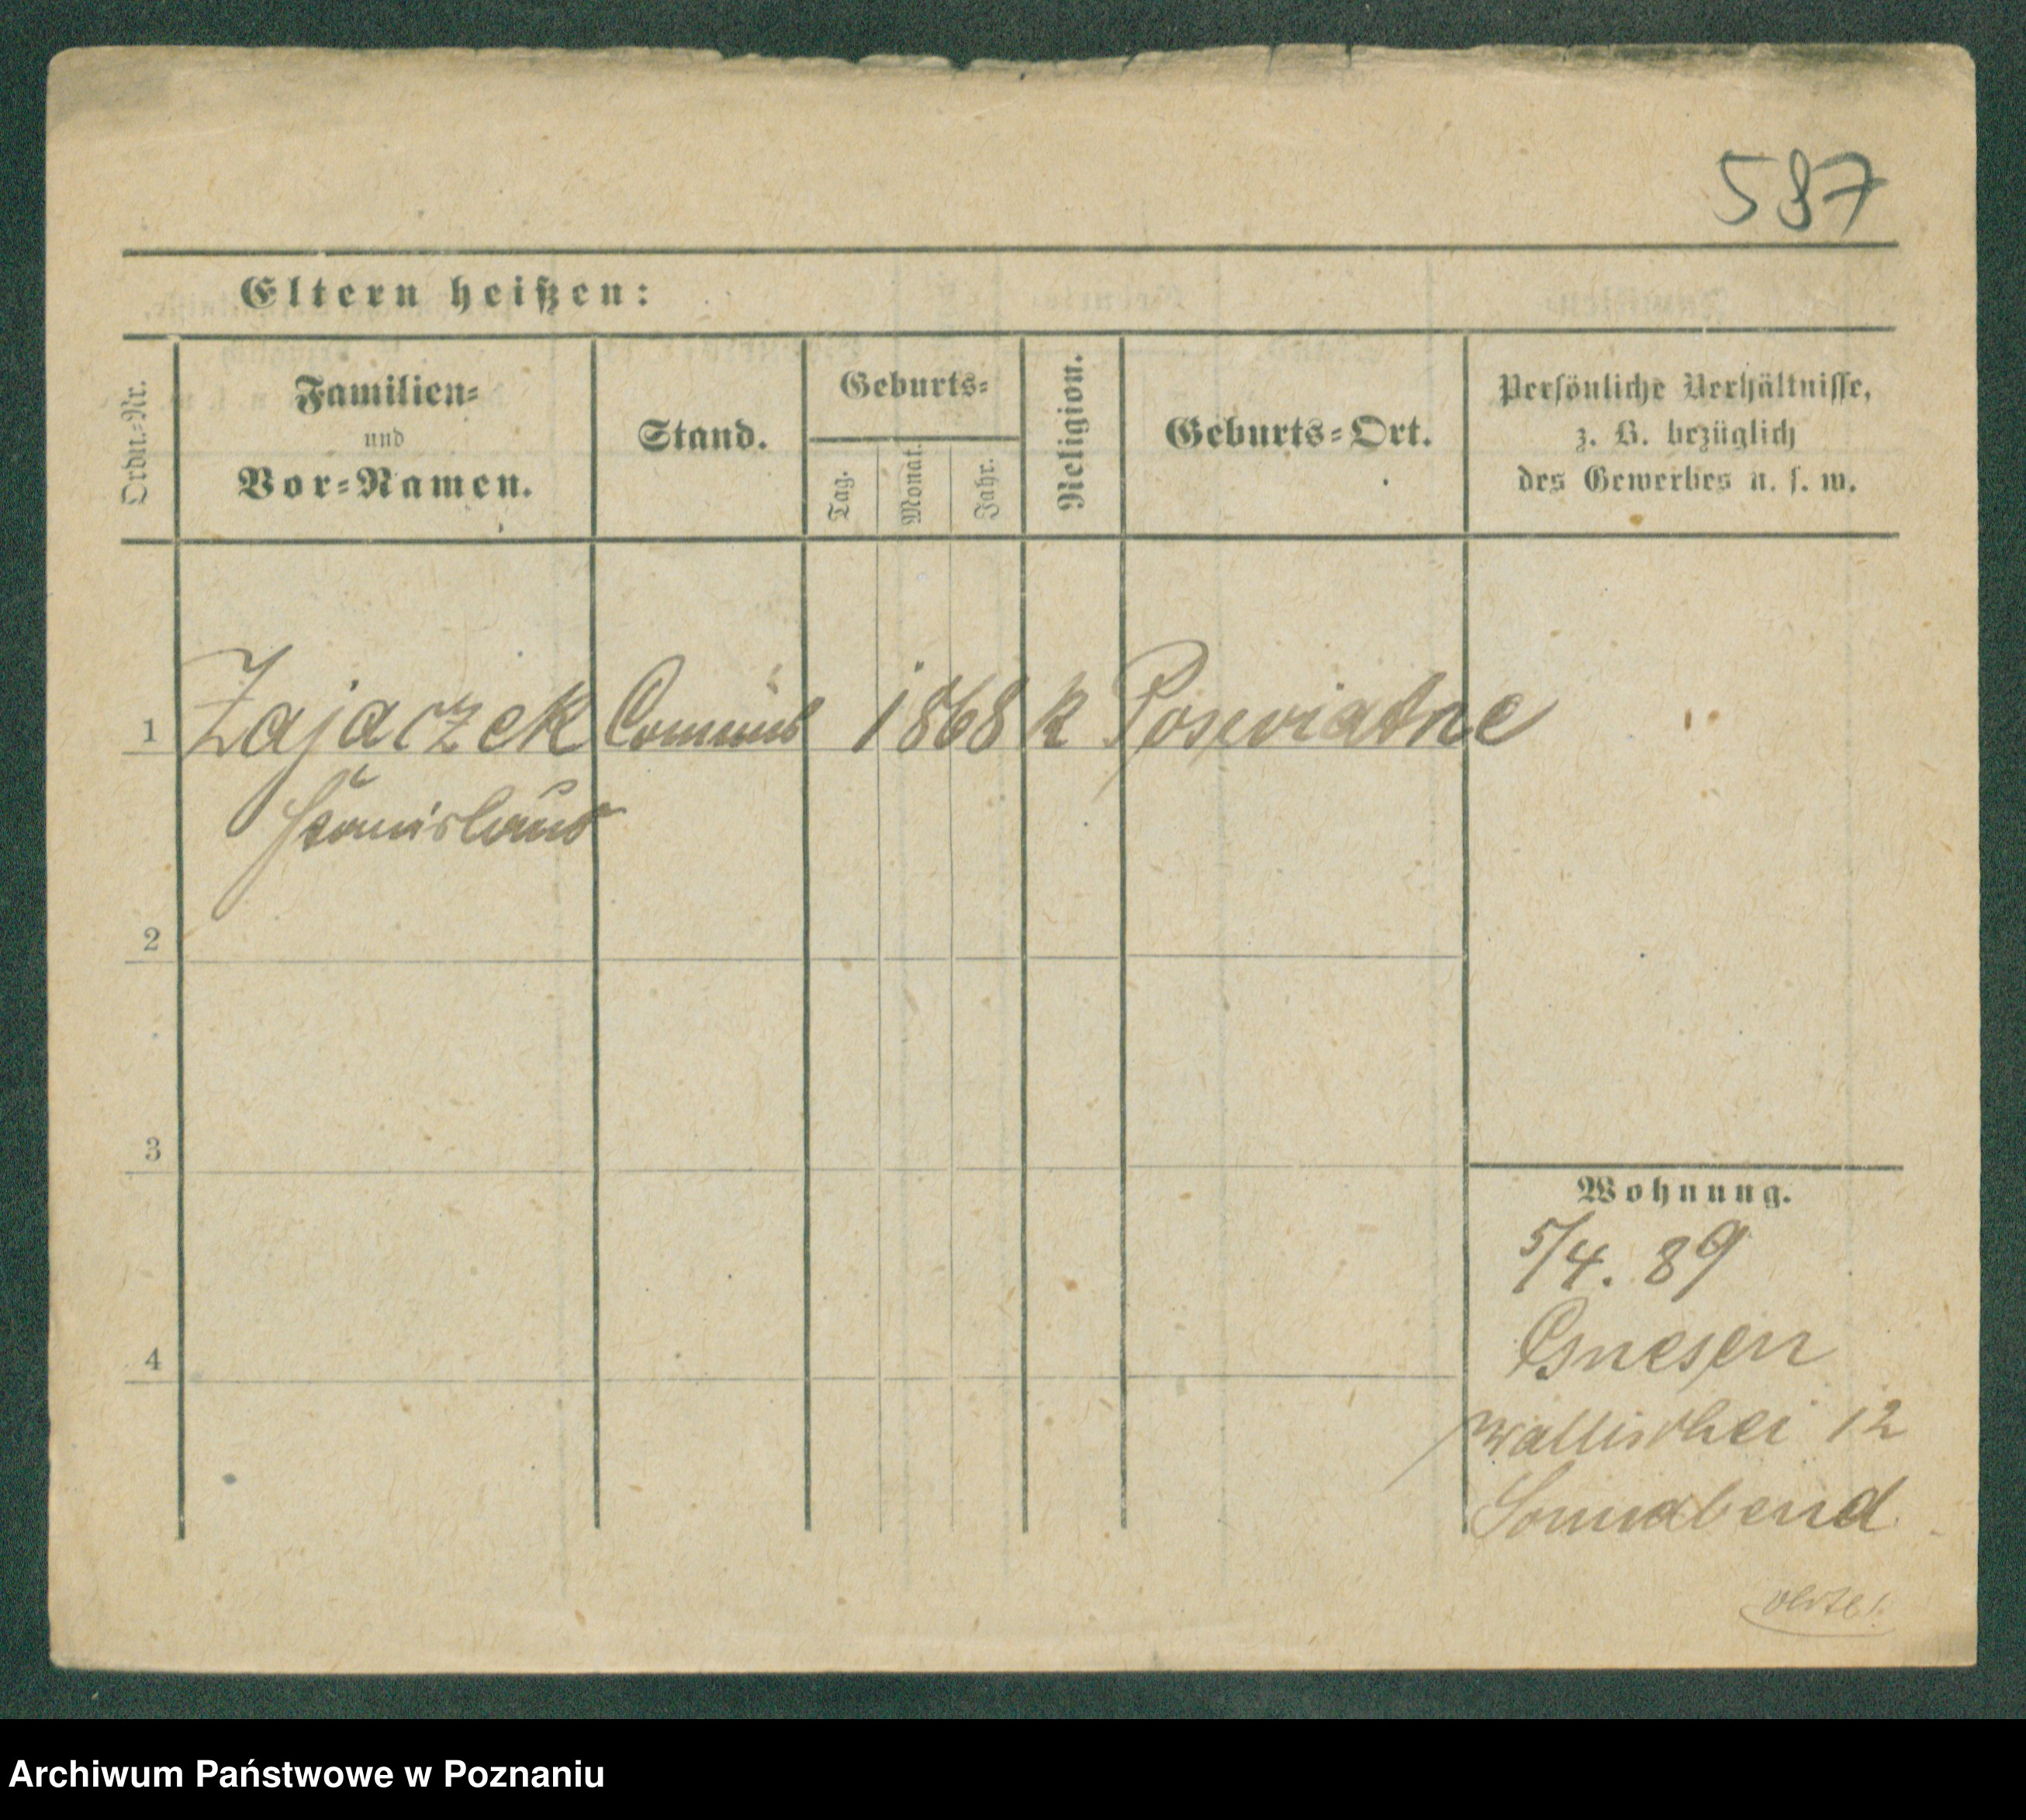 587
Eltern heißen:
Ordn.=Nr.
Familien=
und
Vor=Namen.
Stand.
Geburts=
Tag.
Monat.
Jahr.
Religion.
Geburts=Ort.
Persönliche Verhältnisse,
z. B. bezüglich
des Gewerbes u. s. w.
1 Zajaczek Commis 1868 k Poswiatne
Stanislaus
2
3
4
Wohnung.
5/4. 89
Gnesen
Wallischei 12
Sonnabend
Archiwum Państwowe w Poznaniu